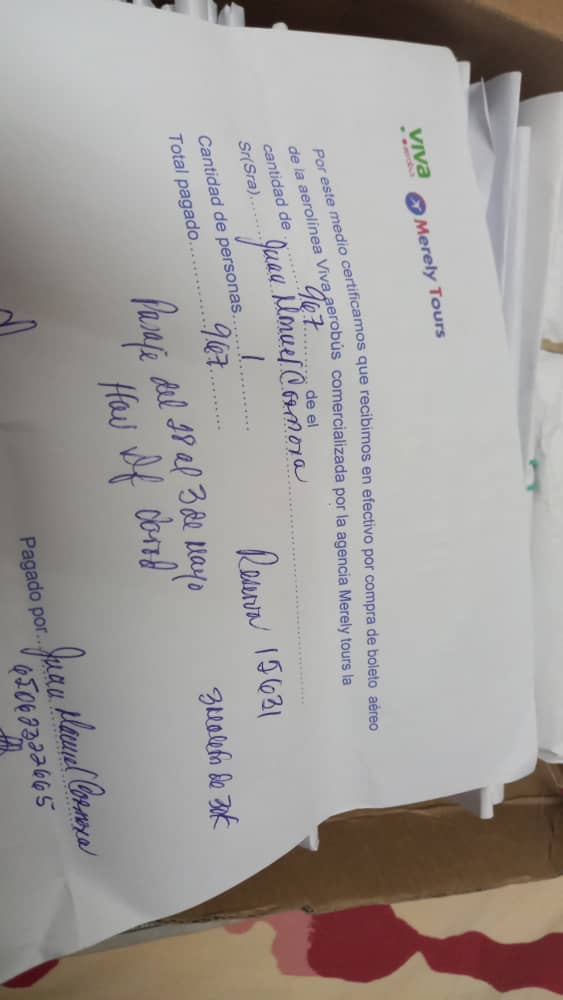 VIVA aerobus Merely Tours
Por este medio certificamos que recibimos en efectivo por compra de boleto aéreo
de la aerolínea Viva aerobús comercializada por la agencia Merely tours la
cantidad de ........967........ de el
Sr(Sra).....Juan Manuel Carmona.....
Cantidad de personas.....1.....
Total pagado..........967..........
Reserva 15631
3 maleta de 30K
Pasaje del 28 al 3 de Mayo
Hav Df
Pagado por...Juan Manuel Carmona